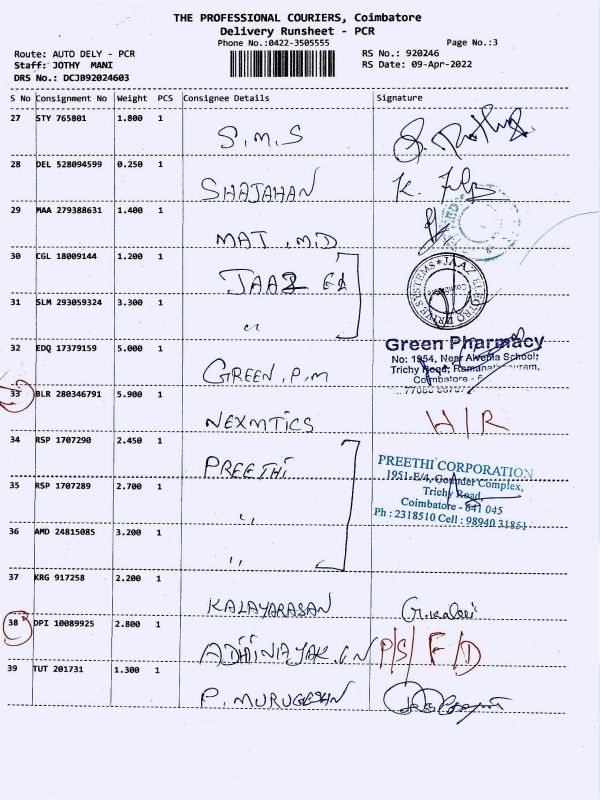 THE PROFESSIONAL COURIERS, Coimbatore
Delivery Runsheet - PCR
Phone No.:0422-3505555
Page No.:3
Route: AUTO DELY - PCR
RS No.: 920246
Staff: JOTHY MANI
RS Date: 09-Apr-2022
DRS No.: DCJB92024603
S No Consignment No Weight PCS Consignee Details Signature
27 STY 765801 1.800 1 S.M.S
28 DEL 528094599 0.250 1 SHAJAHAN
29 MAA 279388631 1.400 1 MAT .M.D
30 CGL 18009144 1.200 1 JAAZ
31 SLM 293059324 3.300 1 "
32 EDQ 17379159 5.000 1 GREEN.P.M
Green Pharmacy
No: 1954, Near Alvernia School;
Trichy Road, Ramanathapuram,
Coimbatore -
33 BLR 280346791 5.900 1 NEXMTICS H/R
34 RSP 1707290 2.450 1 PREETHI
PREETHI CORPORATION
1951-E/4, Gounder Complex,
Trichy Road,
Coimbatore - 641 045
Ph : 2318510 Cell : 98940 31851
35 RSP 1707289 2.700 1 "
36 AMD 24815085 3.200 1 "
37 KRG 917258 2.200 1 KALAYARASAN
38 DPI 10089925 2.800 1 P/S/F/D
39 TUT 201731 1.300 1 P. MURUGESAN